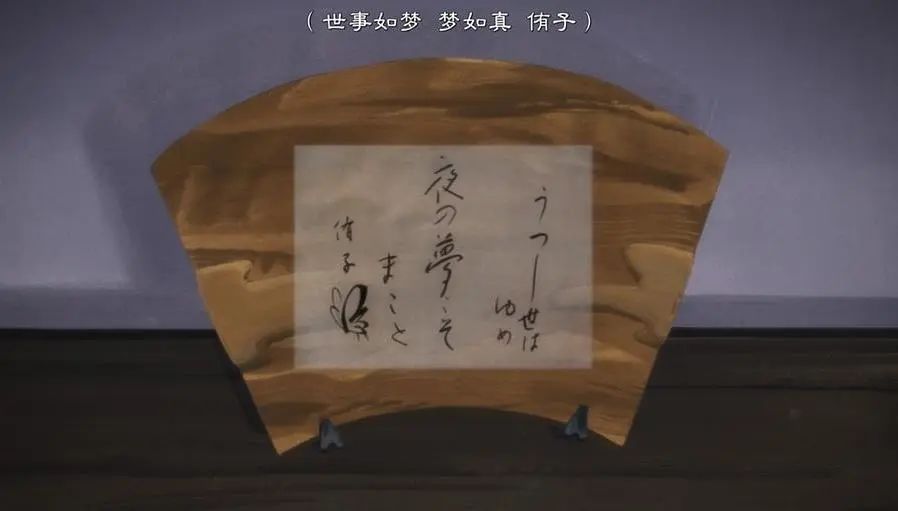 （世事如梦 梦如真 侑子）
うつし世は
ゆめ
夜の夢こそ
まこと
侑子